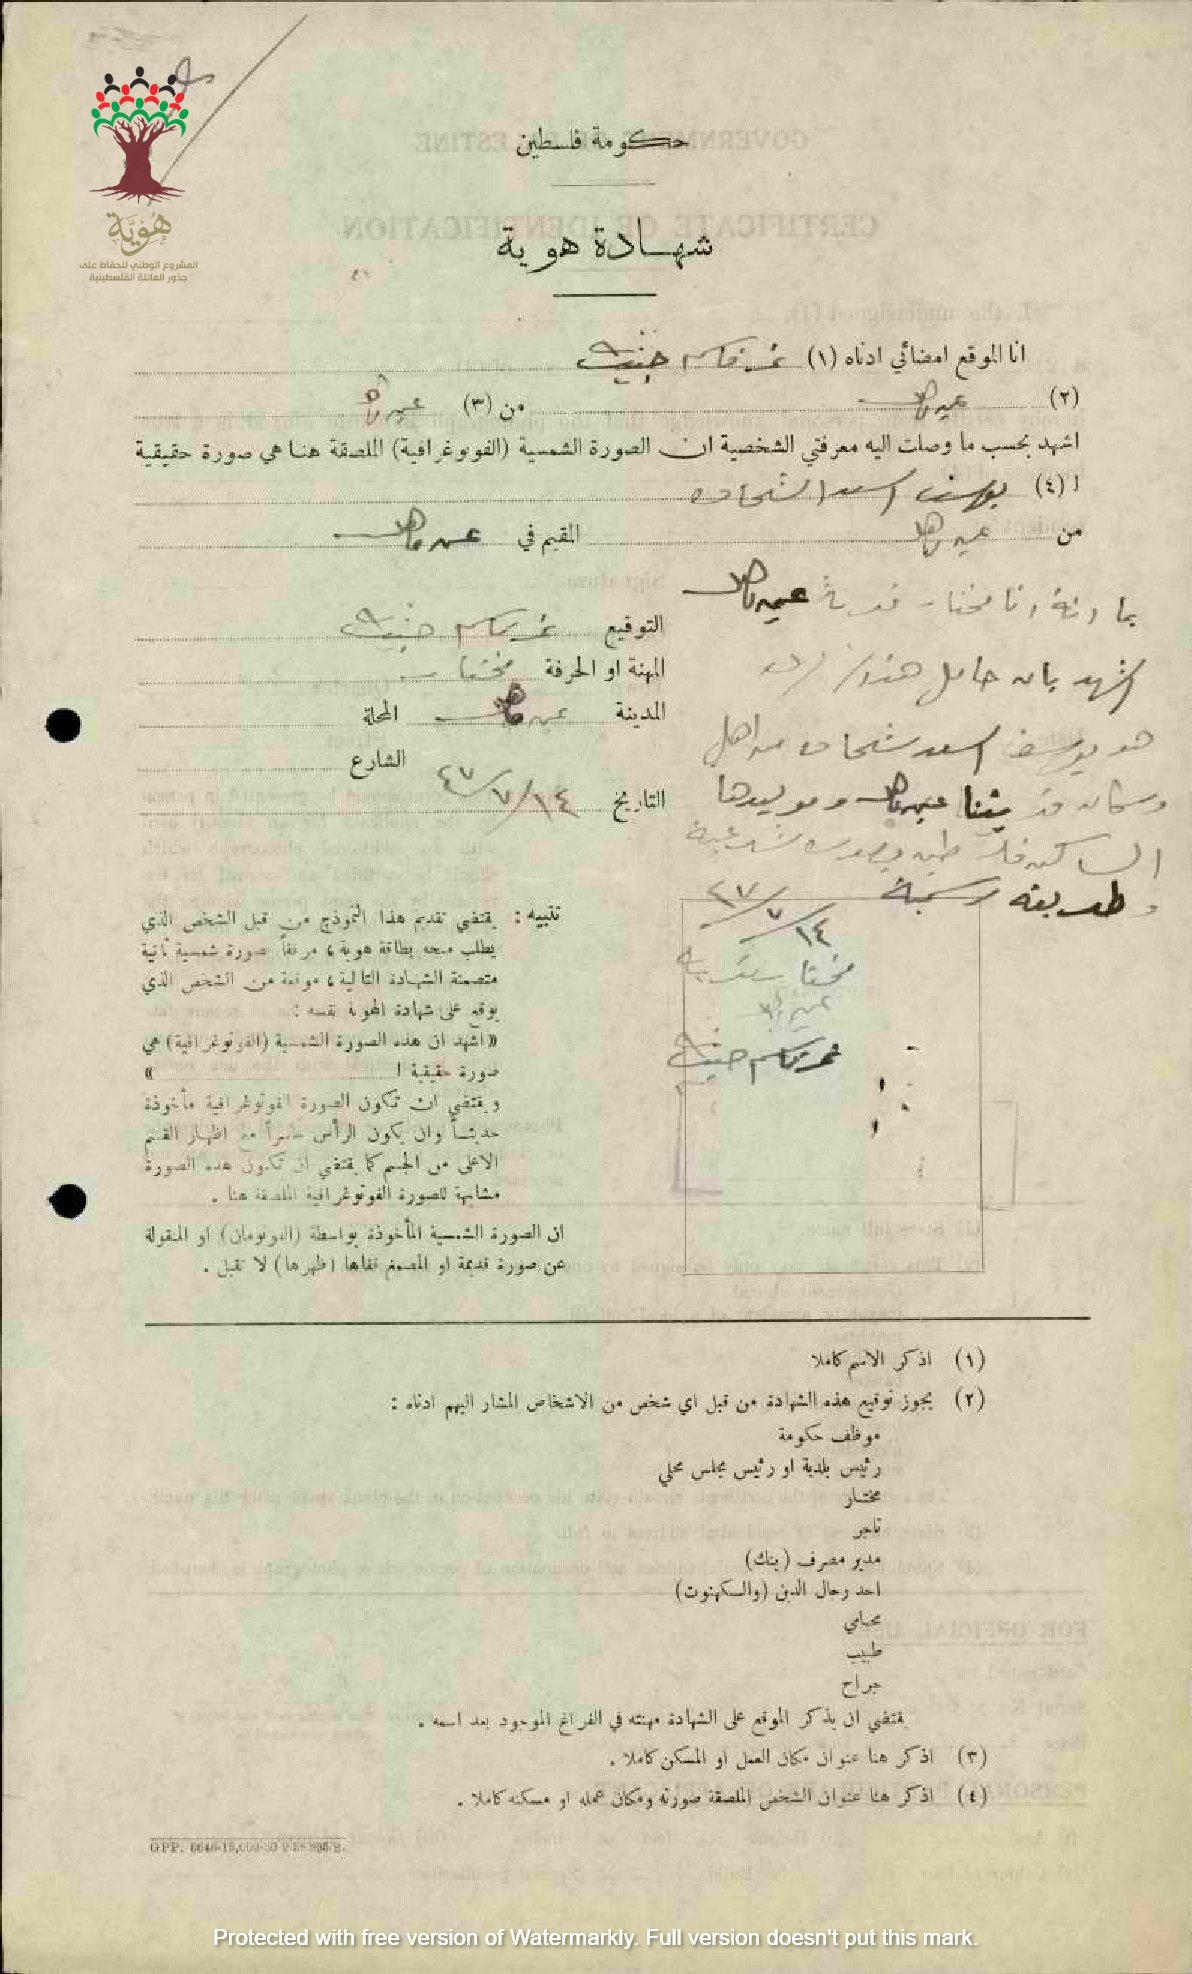 هُوِيَّة
المشروع الوطني للحفاظ على
جذور العائلة الفلسطينية
حكومة فلسطين
شهادة هوية
انا الموقع امضائي ادناه (١) نمر قاسم
(٢) من (٣)
اشهد بحسب ما وصلت اليه معرفتي الشخصية ان الصورة الشمسية (الفوتوغرافية) الملصقة هنا هي صورة حقيقية
ا (٤) يوسف اسعد الشحاده
من المقيم في
بما انه انا مختار قرية
اشهد بان حامل هذا
هو يوسف اسعد شحاده من اهل
وسكان
وطريقه رسمية
١٤/٧/٤٧
مختار قرية
نمر قاسم
التوقيع نمر قاسم
المهنة او الحرفة مختار
المدينة المحلة
الشارع
التاريخ ١٤/٧/٤٧
تنبيه : يقتضي تقديم هذا النموذج من قبل الشخص الذي
يطلب منحه بطاقة هوية، مرفقاً صورة شمسية ثانية
متضمنة الشهادة التالية، موقعة من الشخص الذي
يوقع على شهادة الهوية نفسه :
«اشهد ان هذه الصورة الشمسية (الفوتوغرافية) هي
صورة حقيقية ا »
ويقتضي ان تكون الصورة الفوتوغرافية مأخوذة
حديثاً وان يكون الرأس حاسراً مع اظهار القسم
الاعلى من الجسم كما يقتضي ان تكون هذه الصورة
مشابهة للصورة الفوتوغرافية الملصقة هنا .
ان الصورة الشمسية المأخوذة بواسطة او المنقولة
عن صورة قديمة او المصمغ قفاها (ظهرها) لا تقبل .
(١) اذكر الاسم كاملا
(٢) يجوز توقيع هذه الشهادة من قبل اي شخص من الاشخاص المشار اليهم ادناه :
موظف حكومة
رئيس بلدية او رئيس مجلس محلي
مختار
تاجر
مدير مصرف (بنك)
احد رجال الدين (والكهنوت)
محامي
طبيب
جراح
يقتضي ان يذكر الموقع على الشهادة مهنته في الفراغ الموجود بعد اسمه .
(٣) اذكر هنا عنوان مكان العمل او المسكن كاملا .
(٤) اذكر هنا عنوان الشخص الملصقة صورته ومكان عمله او مسكنه كاملا .
Protected with free version of Watermarkly. Full version doesn't put this mark.